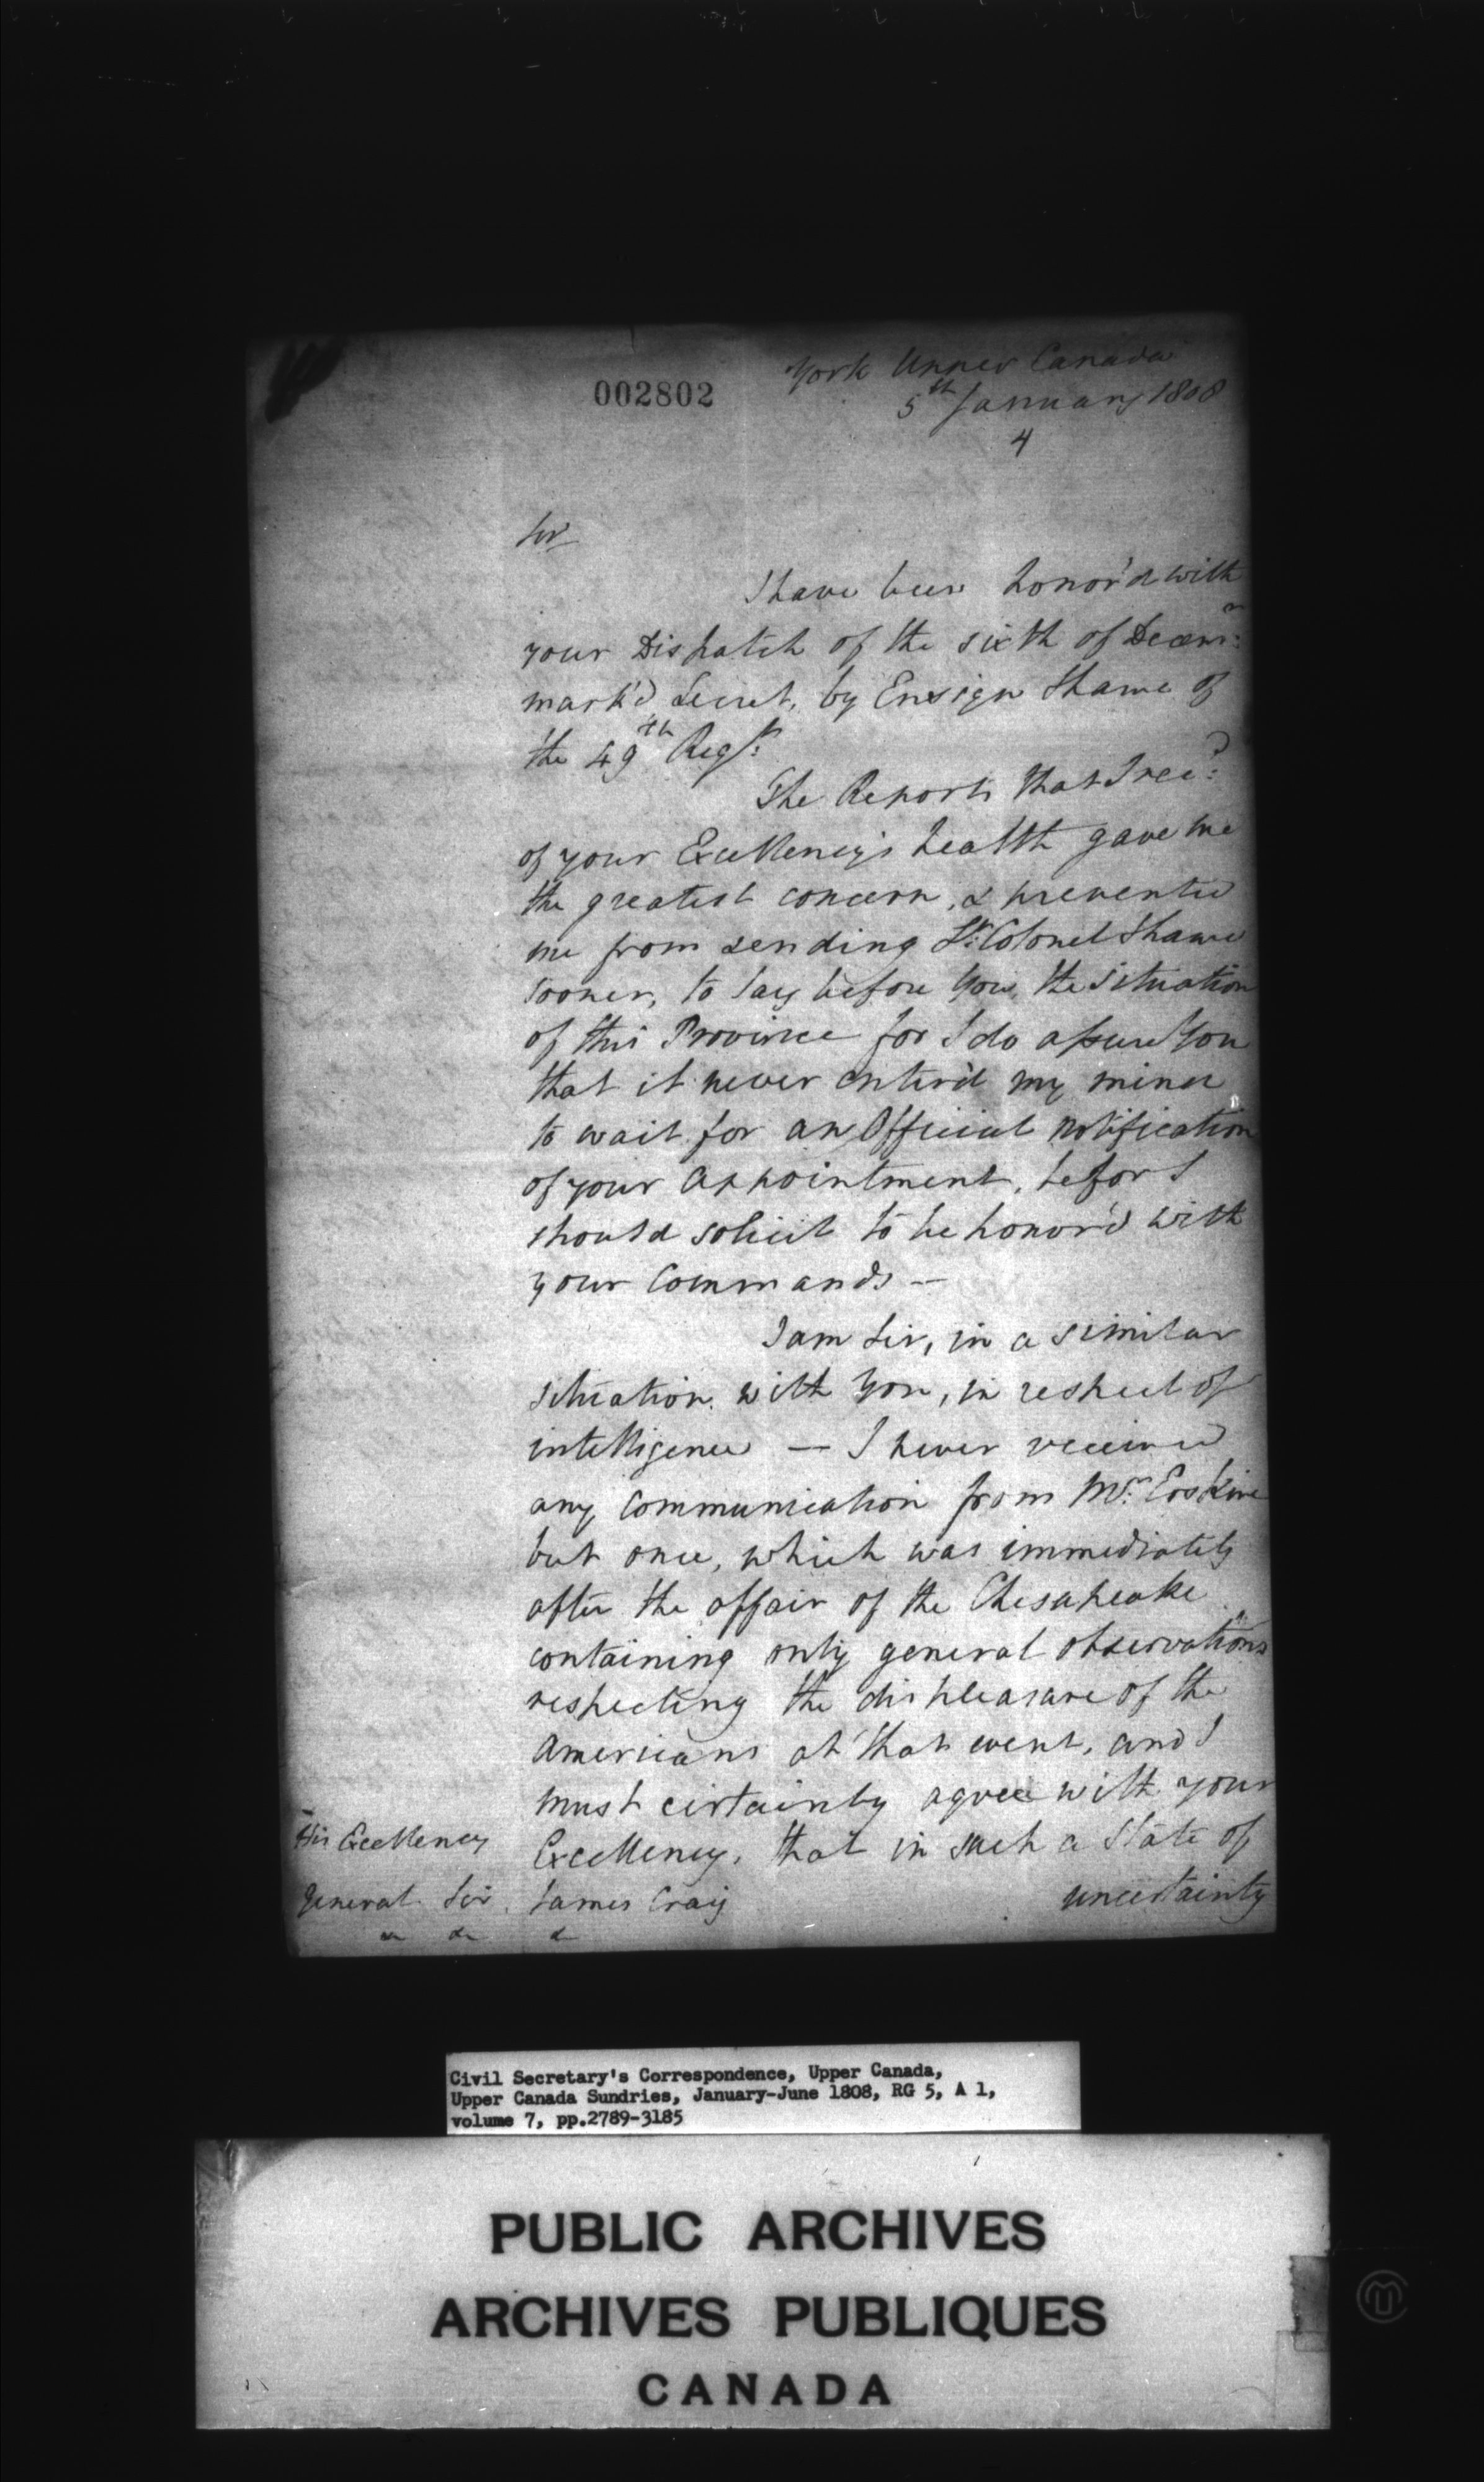 002802
York Upper Canada
5th January 1808
4
Sir
I have been honor'd with
your Dispatch of the sixth of Decemr:
mark'd Secret, by Ensign Shawe of
the 49th Regt:
The Reports that I recd:
of your Excellency's health gave me
the greatest concern, & prevented
me from sending Lt: Colonel Shawe
sooner, to lay before You, the situation
of this Province for I do assure You
that it never enter'd my mind
to wait for an Official notification
of your appointment, befor I
should solicit to be honor'd with
your Commands —
I am Sir, in a similar
situation with You, in respect of
intelligence — I never received
any Communication from Mr: Erskine
but once, which was immediately
after the affair of the Chesapeake
containing only general observations
respecting the displeasure of the
Americans at that event, and I
must certainly agree with your
Excellency, that in such a State of
uncertainty
His Excellency
General Sir James Craig
& & &
Civil Secretary's Correspondence, Upper Canada,
Upper Canada Sundries, January-June 1808, RG 5, A 1,
volume 7, pp.2789-3185
PUBLIC ARCHIVES
ARCHIVES PUBLIQUES
CANADA